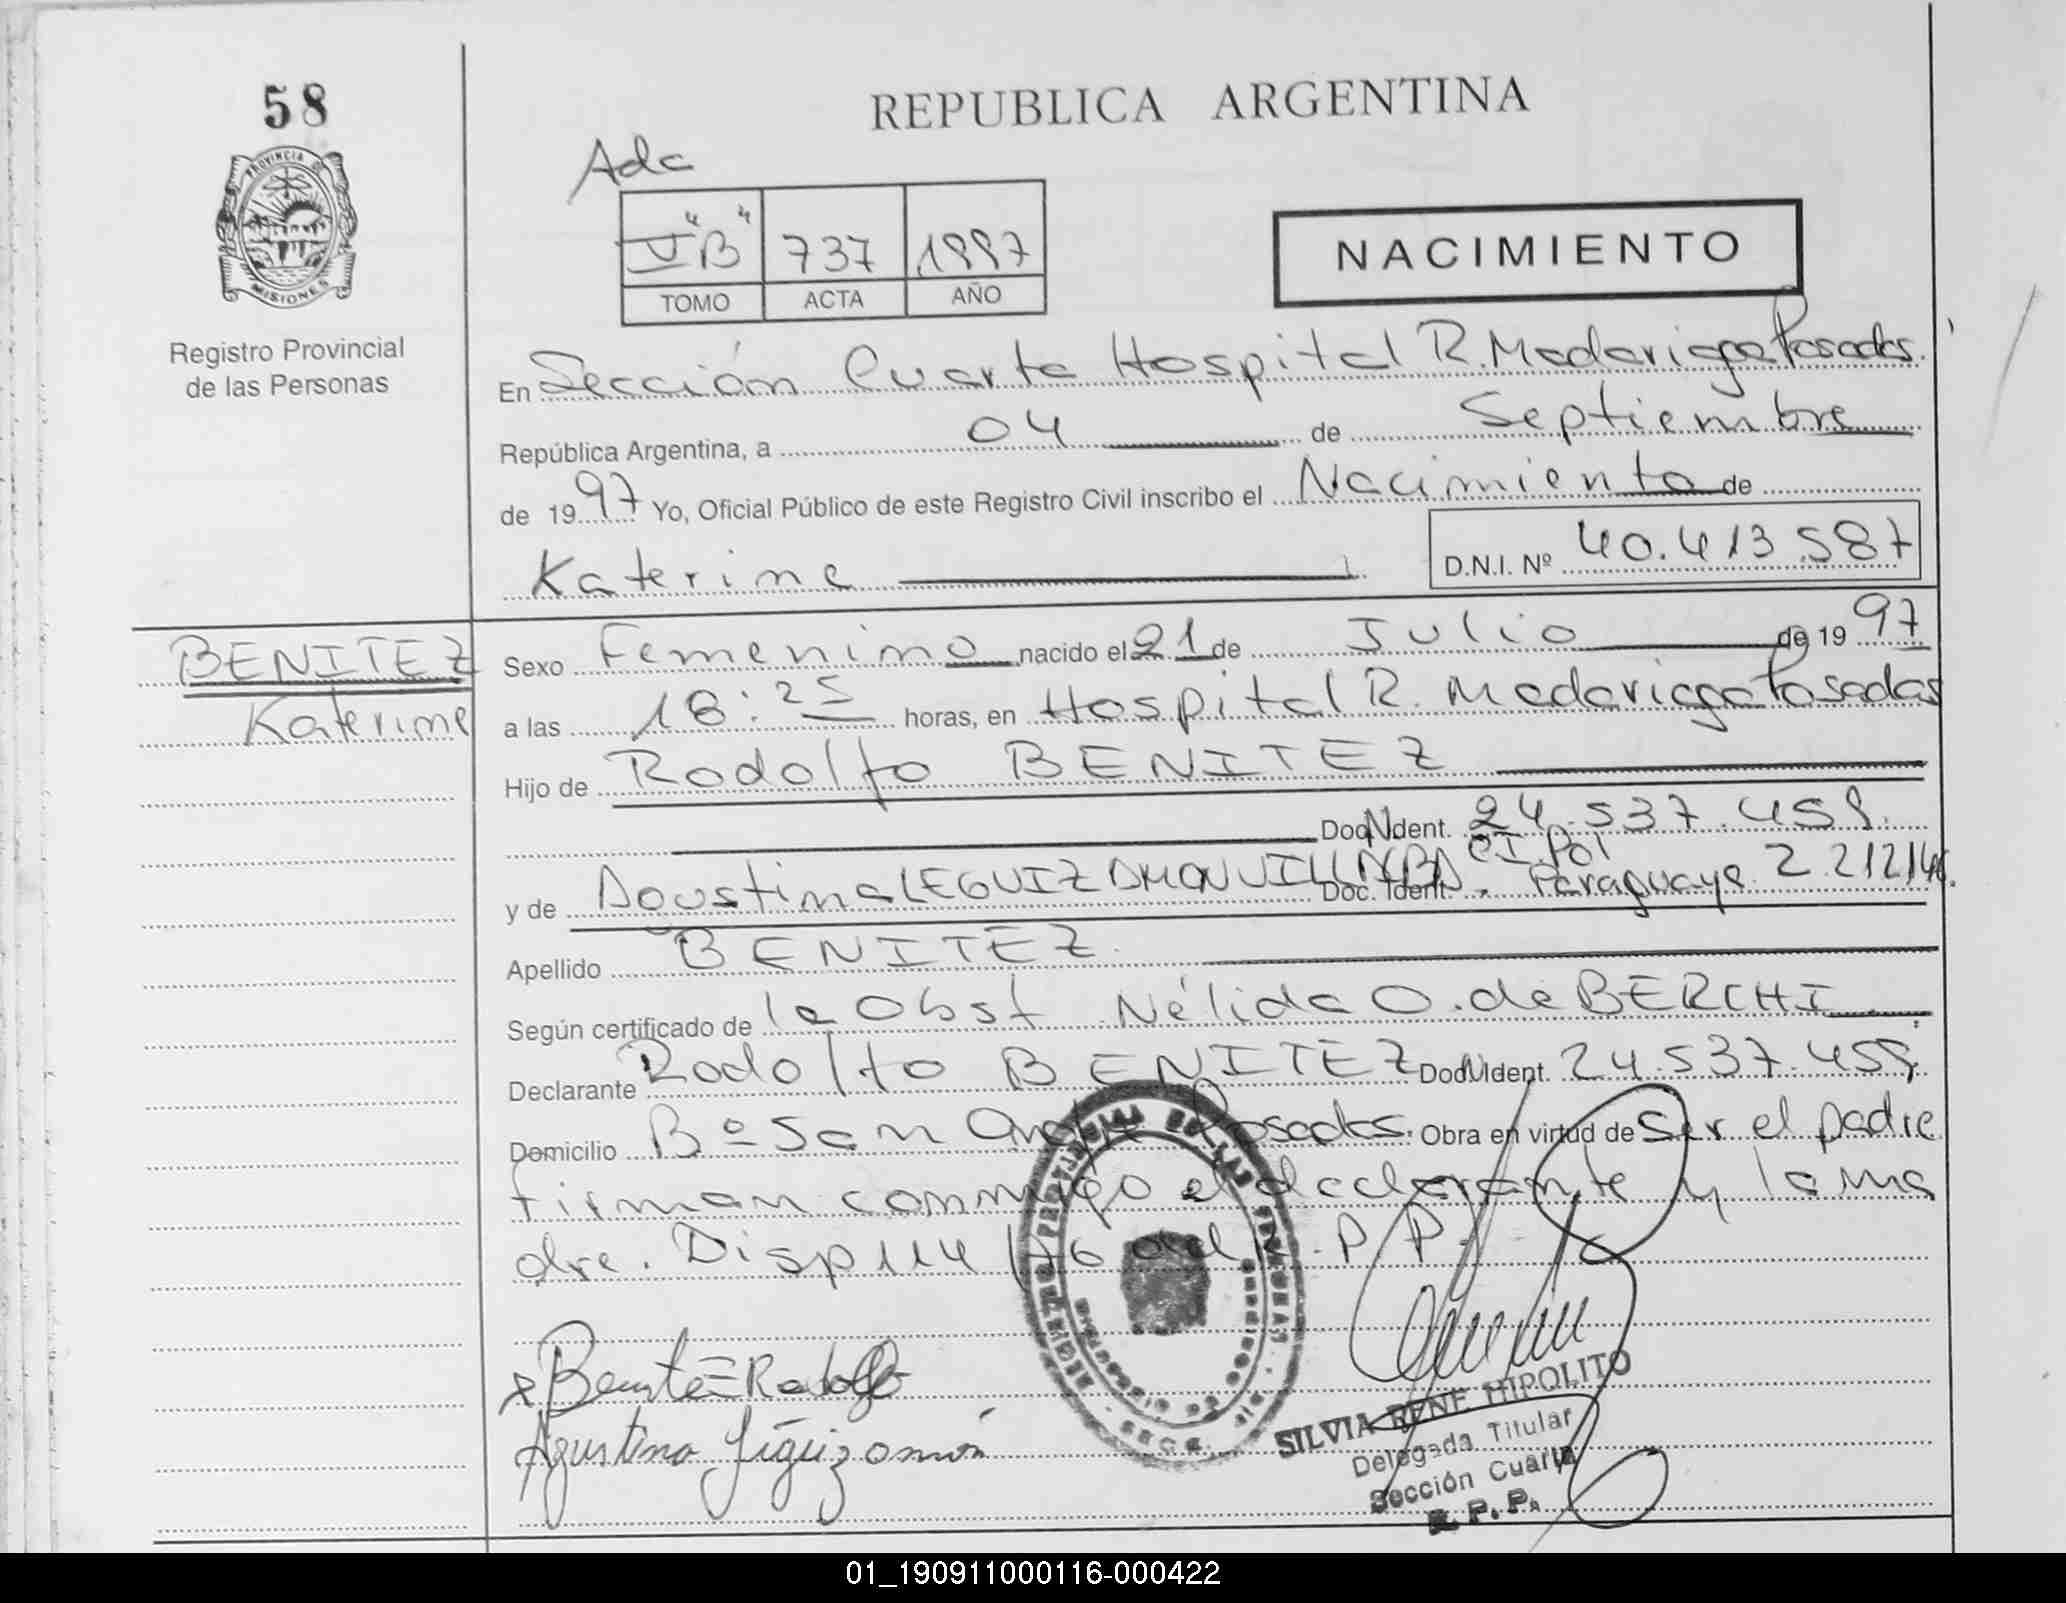 58
REPUBLICA ARGENTINA
PROVINCIA DE
MISIONES
Registro Provincial
de las Personas
Adc
V "B" 737 1997
TOMO ACTA AÑO
NACIMIENTO
En Sección Cuarta Hospital R. Madariaga Posadas.
República Argentina, a 04 de Septiembre
de 1997 Yo, Oficial Público de este Registro Civil inscribo el Nacimiento de
Katerine D.N.I. Nº 40.413.587
BENITEZ
Katerine
Sexo Femenino nacido el 21 de Julio de 1997
a las 18:25 horas, en Hospital R. Madariaga Posadas
Hijo de Rodolfo BENITEZ
Doc. Ident. 24.537.459.
y de Agustina LEGUIZAMON VILLALBA Doc. Ident. CI. Pol Paraguaya 2.212146.
Apellido BENITEZ.
Según certificado de la Obst Nélida O. de BERCHI
Declarante Rodolfo BENITEZ Doc. Ident. 24.537.459
Domicilio Bº San Posadas. Obra en virtud de Ser el padre
firman conmigo el declarante y la ma
dre. Disp 114/76 del R.P.P.
x Benitez Rodolfo
Agustina Leguizamón
SILVIA RENE HIPOLITO
Delegada Titular
Sección Cuarta
R. P. P.
01_190911000116-000422